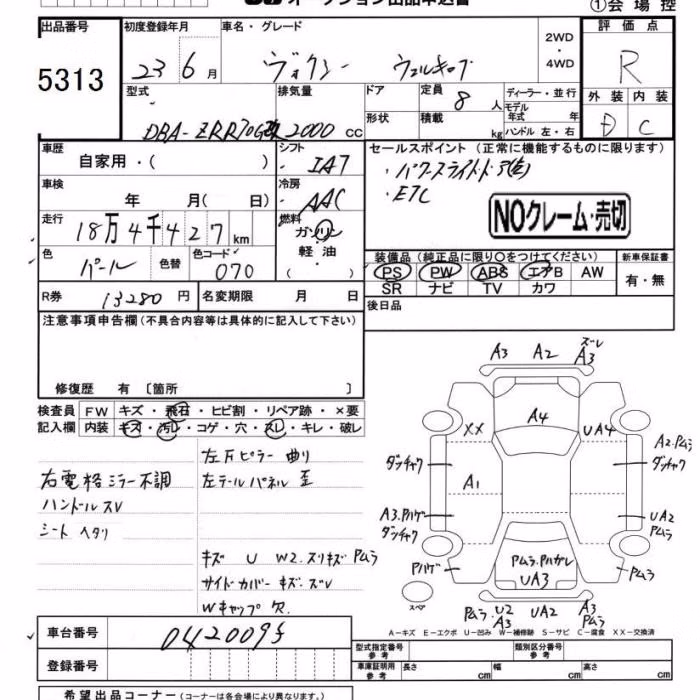 オークション出品申込書
①会場控
出品番号
5313
初度登録年月
23 6 月
車名・グレード
ヴォクシー ウェルキャブ
2WD
・
4WD
評価点
R
型式
DBA-ZRR70G改
排気量
2000 cc
ドア
形状
定員 8 人
積載 kg
ディーラー・並行
モデル
年式 年
ハンドル 左・右
外装 内装
D C
車歴
自家用・( )
シフト
IAT
セールスポイント (正常に機能するものに限ります)
・パワースライドドア(左)
・ETC
NOクレーム・売切
車検
年 月( 日)
冷房
AAC
走行
18万4千427 km
燃料
ガソリン
軽・油
( )
色
パール
色替
色コード
070
装備品 (純正品に限り○をつけてください)
PS PW ABS エアB AW
SR ナビ TV カワ
新車保証書
有・無
R券 13280 円
名変期限 月 日
後日品
注意事項申告欄 (不具合内容等は具体的に記入して下さい)
修復歴 有〔箇所 〕
検査員 FW キズ・飛石・ヒビ割・リペア跡・×要
記入欄 内装 キズ・汚レ・コゲ・穴・スレ・キレ・破レ
右電格ミラー不調
ハンドルスレ
シート ヘタリ
左Fピラー曲り
左テールパネル歪
キズ U W2.スリキズ Pムラ
サイドカバー キズ.ズレ
Wキャップ欠
ズレ
A3 A2 A3
A4
XX UA4
ダンチャク
A2.Pムラ
ダンチャク
A1
A3.Pハゲ
ダンチャク
UA2
Pムラ
Pハゲ
Pムラ.Pハガレ
UA3
Pムラ
スペア
Pムラ U2
A3
UA2
A3
Pムラ
A-キズ E-エクボ U-凹み W-補修跡 S-サビ C-腐食 XX-交換済
車台番号
登録番号
型式指定番号
参考
類別区分番号
参考
車庫証明用
参考
長さ cm
幅 cm
高さ cm
希望出品コーナー (コーナーは各会場により異なります。)